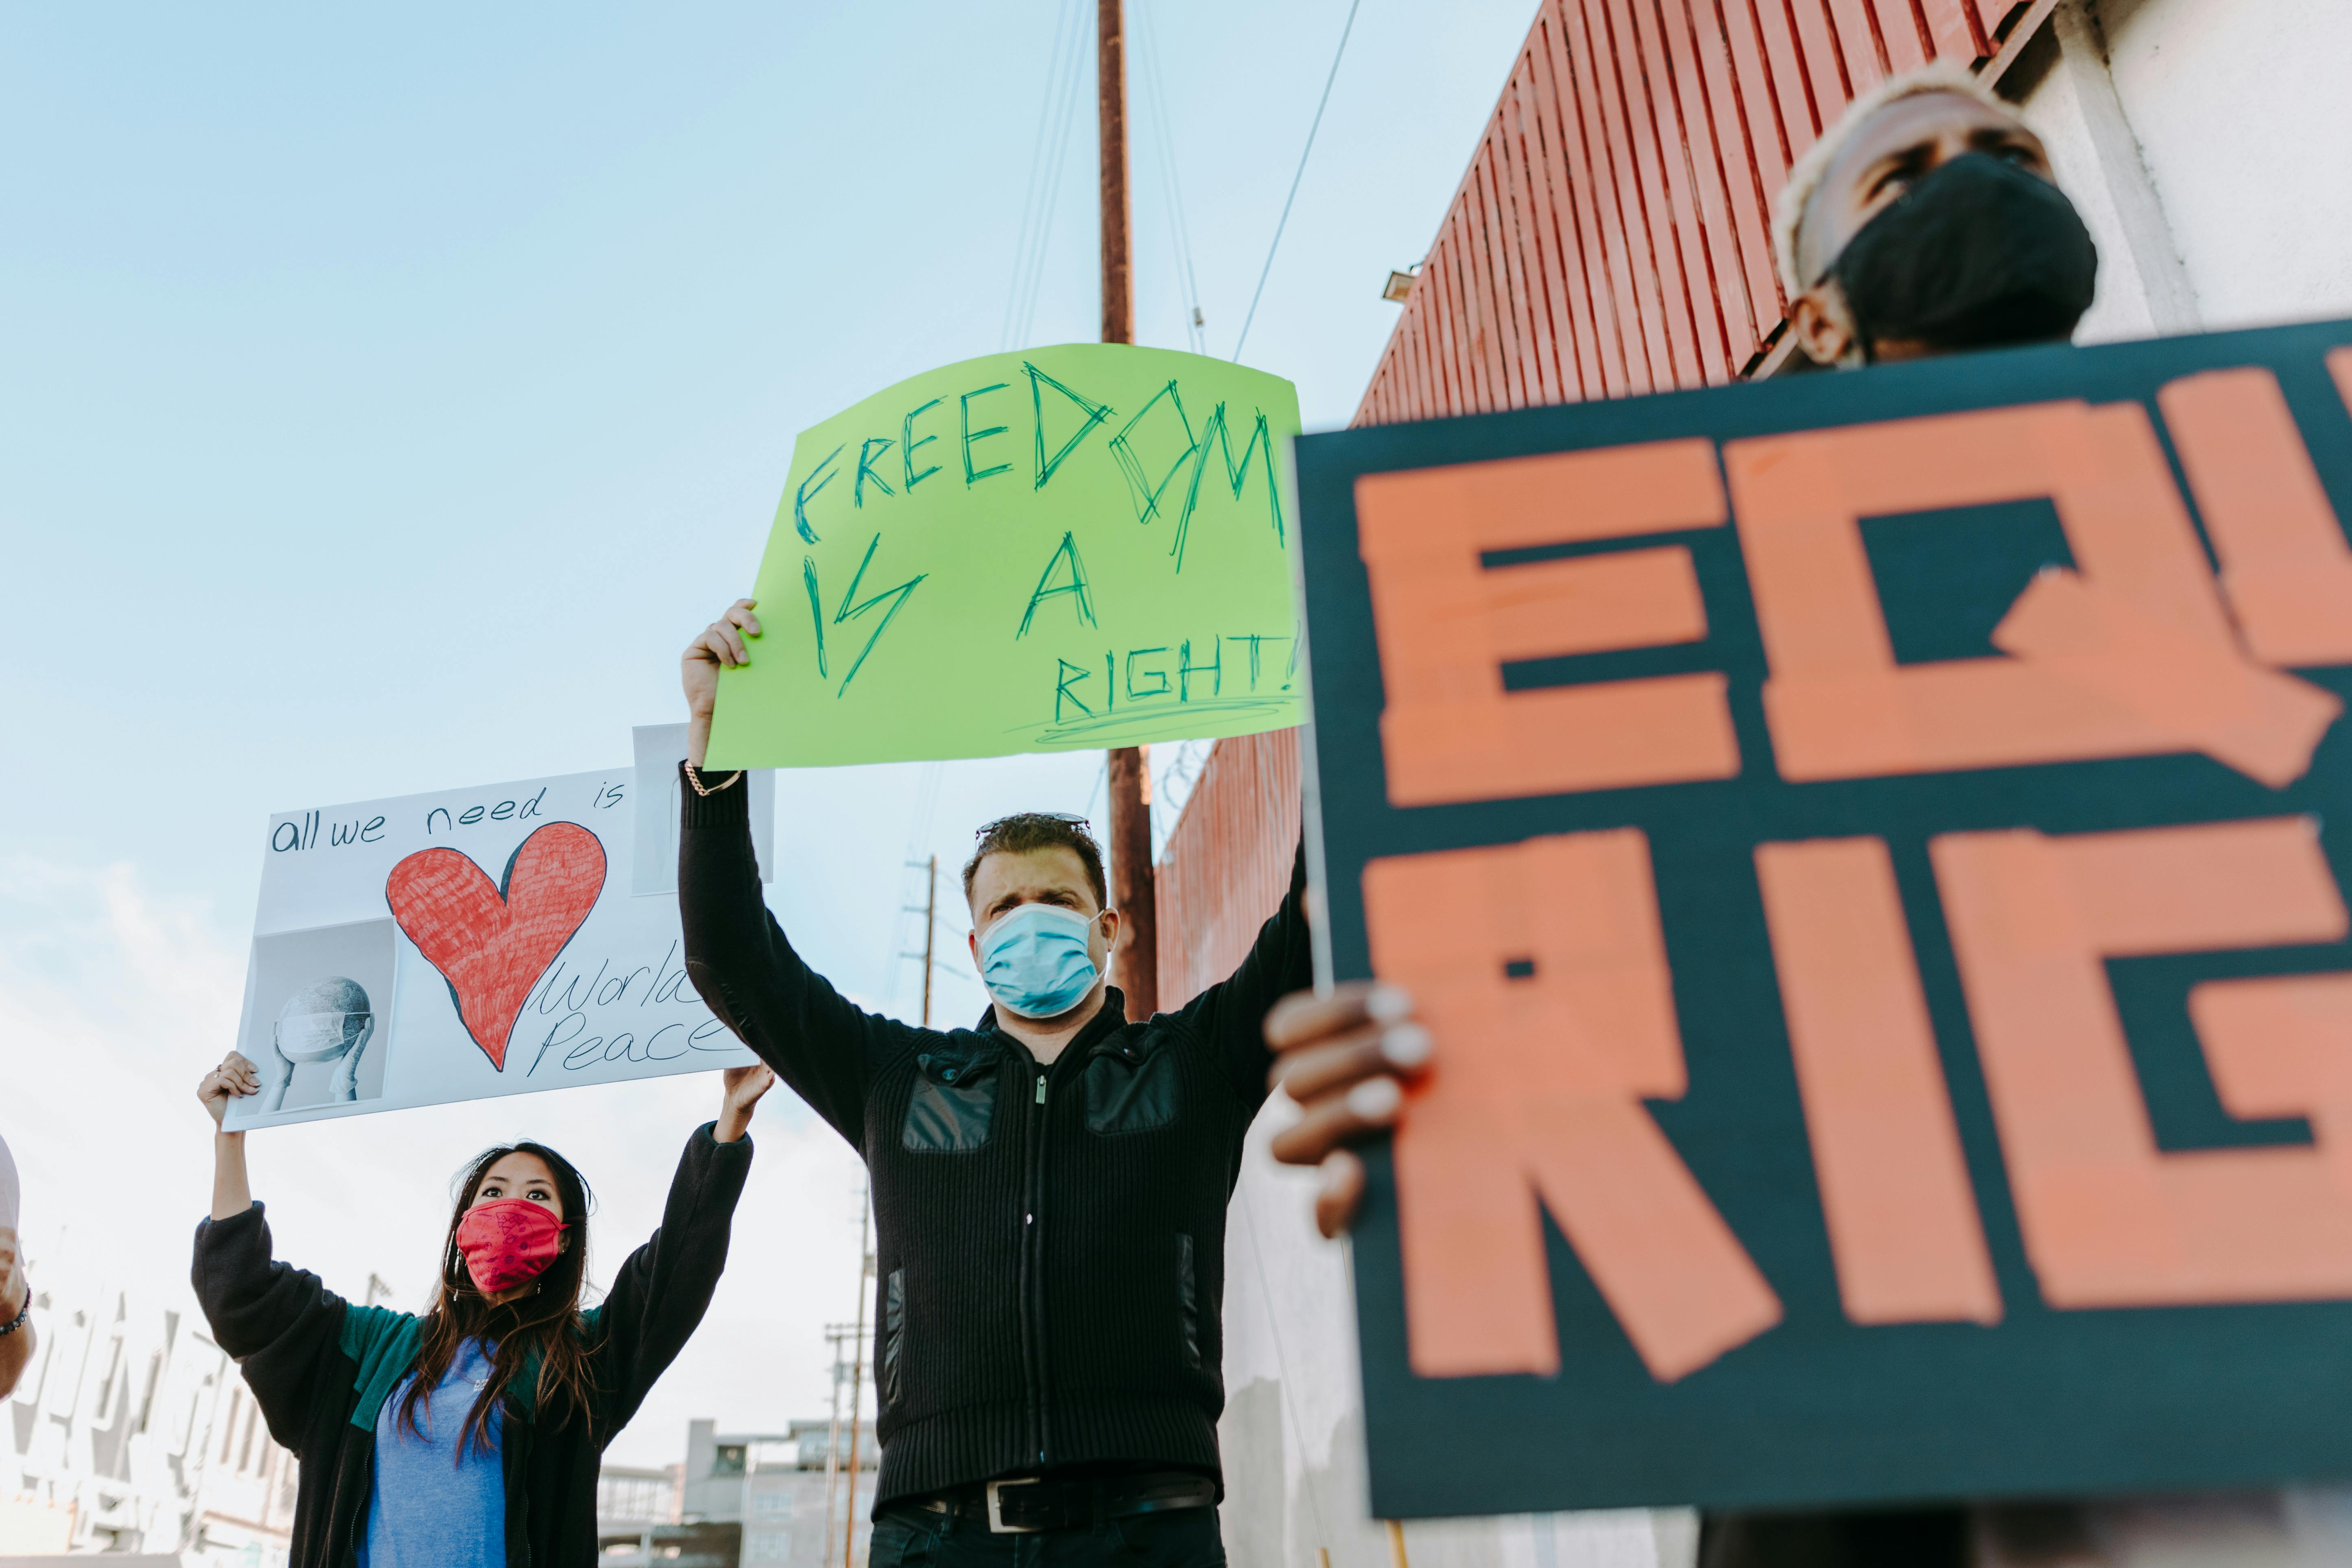 all we need is
World
Peace
FREEDOM
IS A
RIGHT!
EQU
RIG